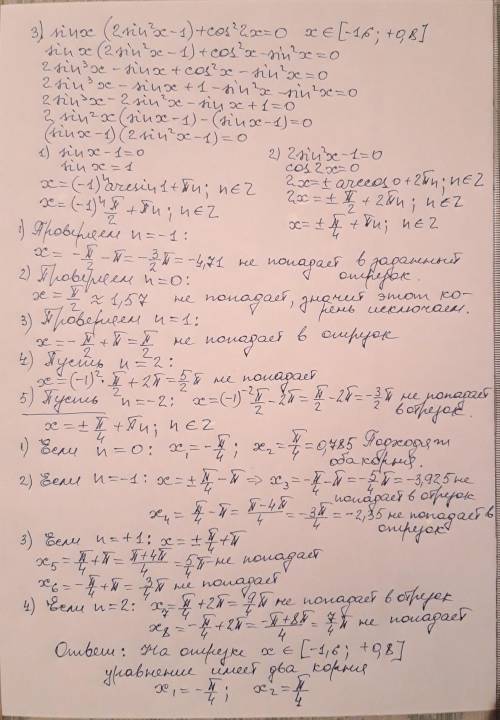 3) sinx (2sin²x-1)+cos²2x=0 x∈[-1,6; +0,8]
sinx(2sin²x-1)+cos²x-sin²x=0
2sin³x-sinx+cos²x-sin²x=0
2sin³x-sinx+1-sin²x-sin²x=0
2sin³x-2sin²x-sinx+1=0
2sin²x(sinx-1)-(sinx-1)=0
(sinx-1)(2sin²x-1)=0
1) sinx-1=0
sinx=1
x=(-1)ⁿarcsin1+πn; n∈Z
x=(-1)ⁿπ/2+πn; n∈Z
2) 2sin²x-1=0
cos2x=0
2x=±arccos0+2πn; n∈Z
2x=±π/2+2πn; n∈Z
x=±π/4+πn; n∈Z
1) Проверяем n=-1:
x=-π/2-π=-3/2π=-4,71 не попадает в заданный
отрезок.
2) Проверяем n=0:
x=π/2≈1,57 не попадает, значит этот ко-
рень исключаем.
3) Проверяем n=1:
x=-π/2+π=π/2 не попадает в отрезок
4) Пусть n=2:
x=(-1)²·π/2+2π=5/2π не попадает
5) Пусть n=-2: x=(-1)⁻²π/2-2π=π/2-2π=-3/2π не попадает
в отрезок.
x=±π/4+πn; n∈Z
1) Если n=0: x₁=-π/4; x₂=π/4=0,785 Подходят
оба корня.
2) Если n=-1: x=±π/4-π ⇒ x₃=-π/4-π=-5/4π=-3,925 не
попадает в отрезок
x₄=π/4-π=π-4π/4=-3π/4=-2,35 не попадает в
отрезок
3) Если n=+1: x=±π/4+π
x₅=π/4+π=π+4π/4=5/4π не попадает
x₆=-π/4+π=3/4π не попадает
4) Если n=2: x₇=π/4+2π=9/4π не попадает в отрезок
x₈=-π/4+2π=-π+8π/4=7/4π не попадает
Ответ: На отрезке x∈[-1,6; +0,8]
уравнение имеет два корня
x₁=-π/4; x₂=π/4